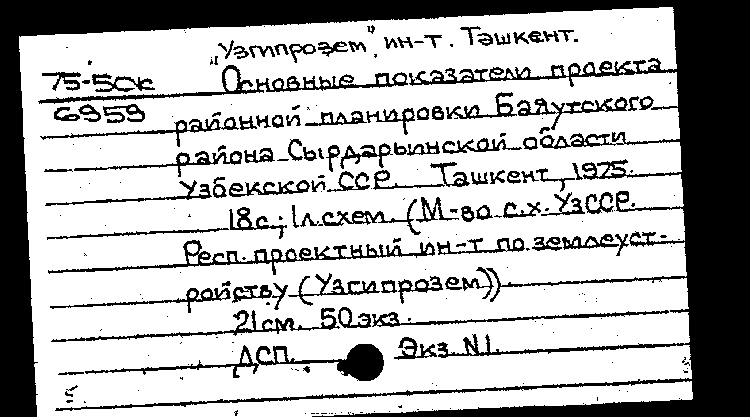 „Узгипрозем", ин-т. Ташкент.
75-5ск Основные показатели проекта
6959 районной планировки Баяутского
района Сырдарьинской области
Узбекской ССР. Ташкент, 1975.
18с.; 1л.схем. (М-во с.х. УзССР.
Респ. проектный ин-т по землеуст-
ройству (Узгипрозем)).
21см. 50экз.
ДСП. Экз. N1.